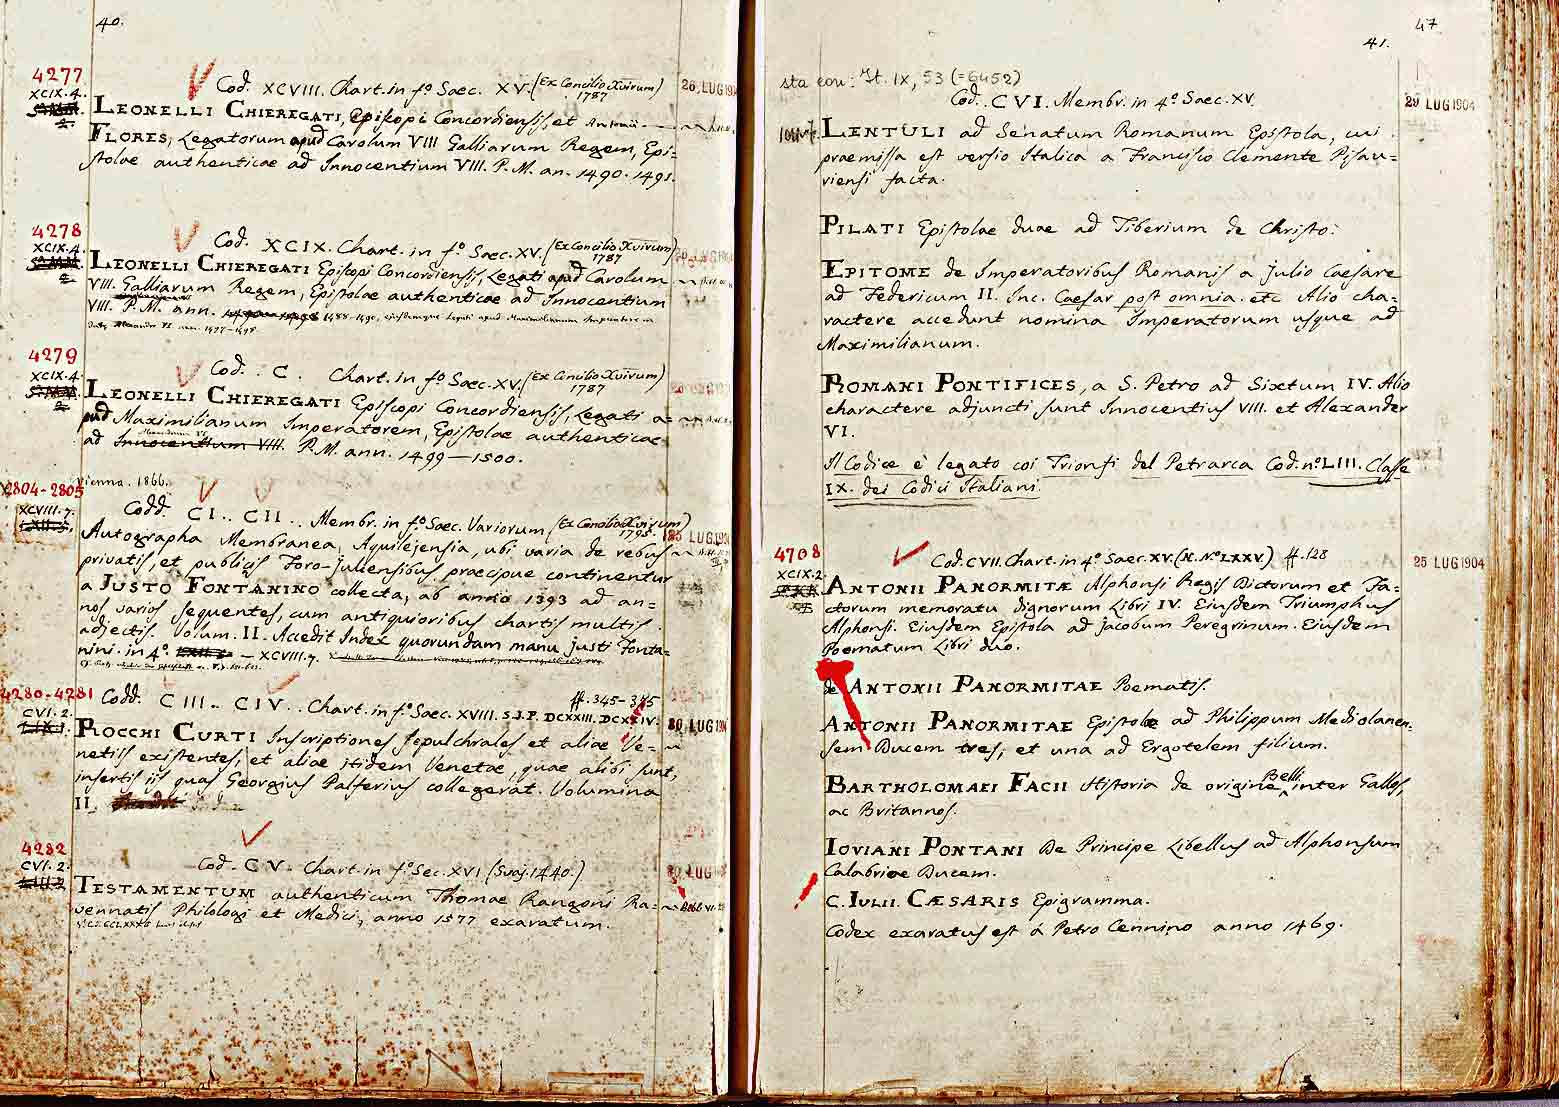 40.
4277
XCIX.4.
Cod. XCVIII. Chart. in fo. Saec. XV. (Ex Concilio Xvirum) 1787
26 LUG 190
LEONELLI CHIEREGATI, Episcopi Concordiensis, et Antonii
FLORES, Legatorum apud Carolum VIII Galliarum Regem, Epi=
stolae authenticae ad Innocentium VIII. P.M. an. 1490. 1491.
4278
XCIX.4.
Cod. XCIX. Chart. in fo. Saec. XV. (Ex Concilio Xvirum) 1787
LEONELLI CHIEREGATI Episcopi Concordiensis, Legati apud Carolum
VIII. Galliarum Regem, Epistolae authenticae ad Innocentium
VIII. P.M. ann. 1488-1490, ejusdemque legati apud Maximilianum Imperatorem
ann. 1497-1498
4279
XCIX.4.
Cod. C. Chart. in fo. Saec. XV. (Ex Concilio Xvirum) 1787
LEONELLI CHIEREGATI Episcopi Concordiensis, Legati a=
pud Maximilianum Imperatorem, Epistolae authenticae
Alexandrum VI.
ad Innocentium VIII. P.M. ann. 1499—1500.
Vienna. 1866.
2804-2805
XCVIII.7.
Codd. CI.. CII.. Membr. in fo. Saec. Variorum (Ex Concilio Xvirum) 1795.
25 LUG 190
Autographa Membranea, Aquilejensia, ubi varia de rebus
privatis, et publicis Foro-Juliensibus praecipue continentur
a JUSTO FONTANINO collecta, ab anno 1393 ad an=
nos varios sequentes, cum antiquioribus chartis multis
adjectis. Volum. II. Accedit Index quorundam manu Justi Fonta=
nini. in 4o. — XCVIII.7.
4280-4281
CVI.2.
Codd. CIII.. CIV.. Chart. in fo. Saec. XVIII. S.J.P. DCXXIII. DCXXIV.
ff. 345-345
30 LUG 190
ROCCHI CURTI Inscriptiones sepulchrales et aliae Ve=
netiis existentes, et aliae itidem Venetae, quae alibi sunt,
insertis iis quas Georgius Palferius collegerat. Volumina
II.
4282
CVI.2.
Cod. CV. Chart. in fo. Sec. XVI (Svaj. 1440.)
30 LUG
TESTAMENTUM authenticum Thomae Rangoni Ra=
vennatis Philologi et Medici, anno 1577 exaratum.
47
41.
sta con: It. IX, 53 (=6452)
Cod. CVI. Membr. in 4o. Saec. XV.
29 LUG 1904
LENTULI ad Senatum Romanum Epistola, cui
praemissa est versio Italica a Francisco Clemente Pisau=
riensi facta.
PILATI Epistolae duae ad Tiberium de Christo.
EPITOME de Imperatoribus Romanis a Julio Caesare
ad Federicum II. Inc. Caesar post omnia. etc Alio cha=
ractere accedunt nomina Imperatorum usque ad
Maximilianum.
ROMANI PONTIFICES, a S. Petro ad Sixtum IV. Alio
charactere adjuncti sunt Innocentius VIII. et Alexander
VI.
Il Codice è legato coi Trionfi del Petrarca Cod. no. LIII. Classe
IX. dei Codici Italiani.
4708
XCIX.2
Cod. CVII. Chart. in 4o. Saec. XV. (N. No. LXXV.) ff. 128
25 LUG 1904
ANTONII PANORMITÆ Alphonsi Regis Dictorum et Fa=
ctorum memoratu dignorum Libri IV. Eiusdem Triumphus
Alphonsi. Eiusdem Epistola ad Jacobum Peregrinum. Eiusdem
Poematum Libri duo.
de ANTONII PANORMITAE Poematis.
ANTONII PANORMITAE Epistole ad Philippum Mediolanen=
sem Ducem tres, et una ad Ergotelem filium.
BARTHOLOMAEI FACII Historia de origine Belli inter Gallos,
ac Britannos.
IOVIANI PONTANI De Principe Libellus ad Alphonsum
Calabriae Ducem.
C. IULII CÆSARIS Epigramma.
Codex exaratus est á Petro Cennino anno 1469.